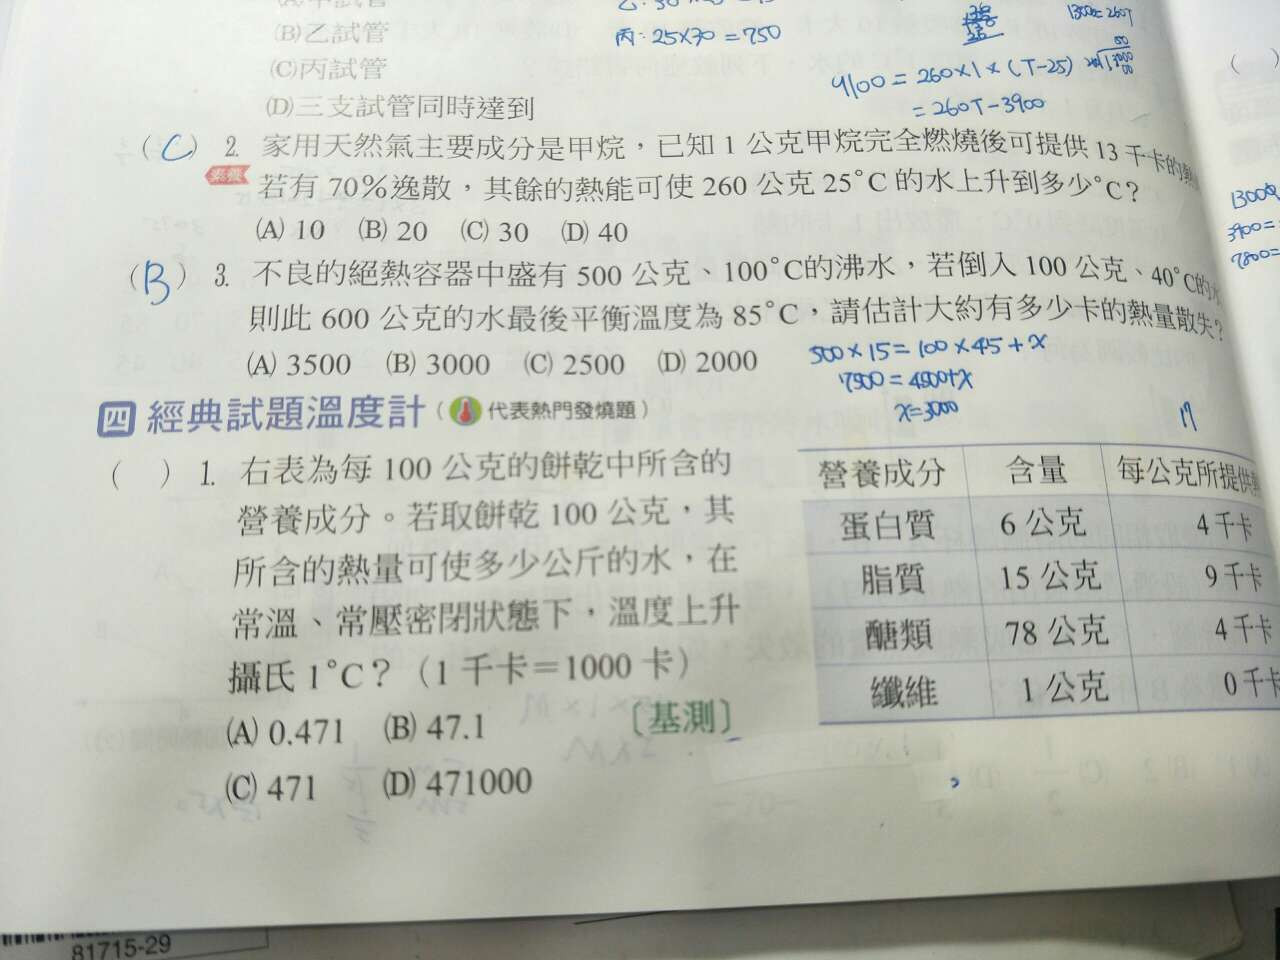 (B)乙試管
丙:25×70=750
1300=260T
(C)丙試管
9100=260×1×(T-25)
(D)三支試管同時達到
=260T-3900
(C) 2. 家用天然氣主要成分是甲烷,已知1公克甲烷完全燃燒後可提供13千卡的熱
素養
若有70%逸散,其餘的熱能可使260公克25°C的水上升到多少°C?
(A) 10 (B) 20 (C) 30 (D) 40
3900=
7800=
(B) 3. 不良的絕熱容器中盛有500公克、100°C的沸水,若倒入100公克、40°C的水
則此600公克的水最後平衡溫度為85°C,請估計大約有多少卡的熱量散失?
(A) 3500 (B) 3000 (C) 2500 (D) 2000
500×15=100×45+x
7500=4500+x
x=3000
四 經典試題溫度計(代表熱門發燒題)
( ) 1. 右表為每100公克的餅乾中所含的
營養成分。若取餅乾100公克,其
所含的熱量可使多少公斤的水,在
常溫、常壓密閉狀態下,溫度上升
攝氏1°C?(1千卡=1000卡)
(A) 0.471 (B) 47.1 〔基測〕
(C) 471 (D) 471000
營養成分 含量 每公克所提供
蛋白質 6公克 4千卡
脂質 15公克 9千卡
醣類 78公克 4千卡
纖維 1公克 0千卡
81715-29